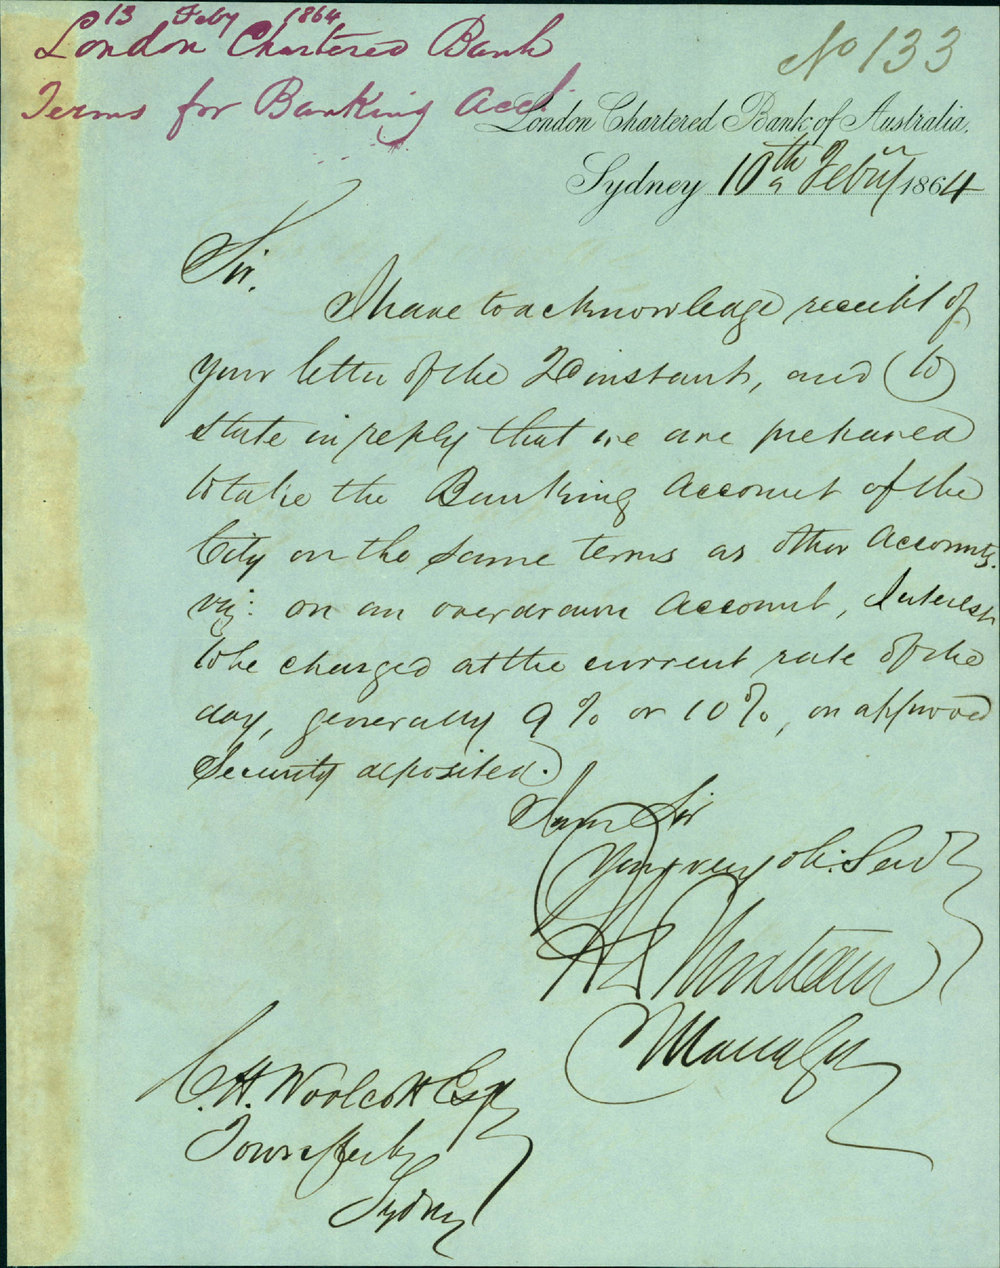 13 Feby 1864
London Chartered Bank
Terms for Banking Acct.
No 133
London Chartered Bank of Australia,
Sydney 10th Feby 1864
Sir,
I have to acknowledge receipt of
your letter of the instant, and to
state in reply that we are prepared
to take the Banking Account of the
City on the same terms as other Accounts.
viz: on an overdrawn Account, Interest
to be charged at the current rate of the
day, generally 9% or 10%, on approved
Security deposited.
I am Sir
Your very ob: Servt
Manager
C.H. Woolcott Esq
Town Clerk
Sydney